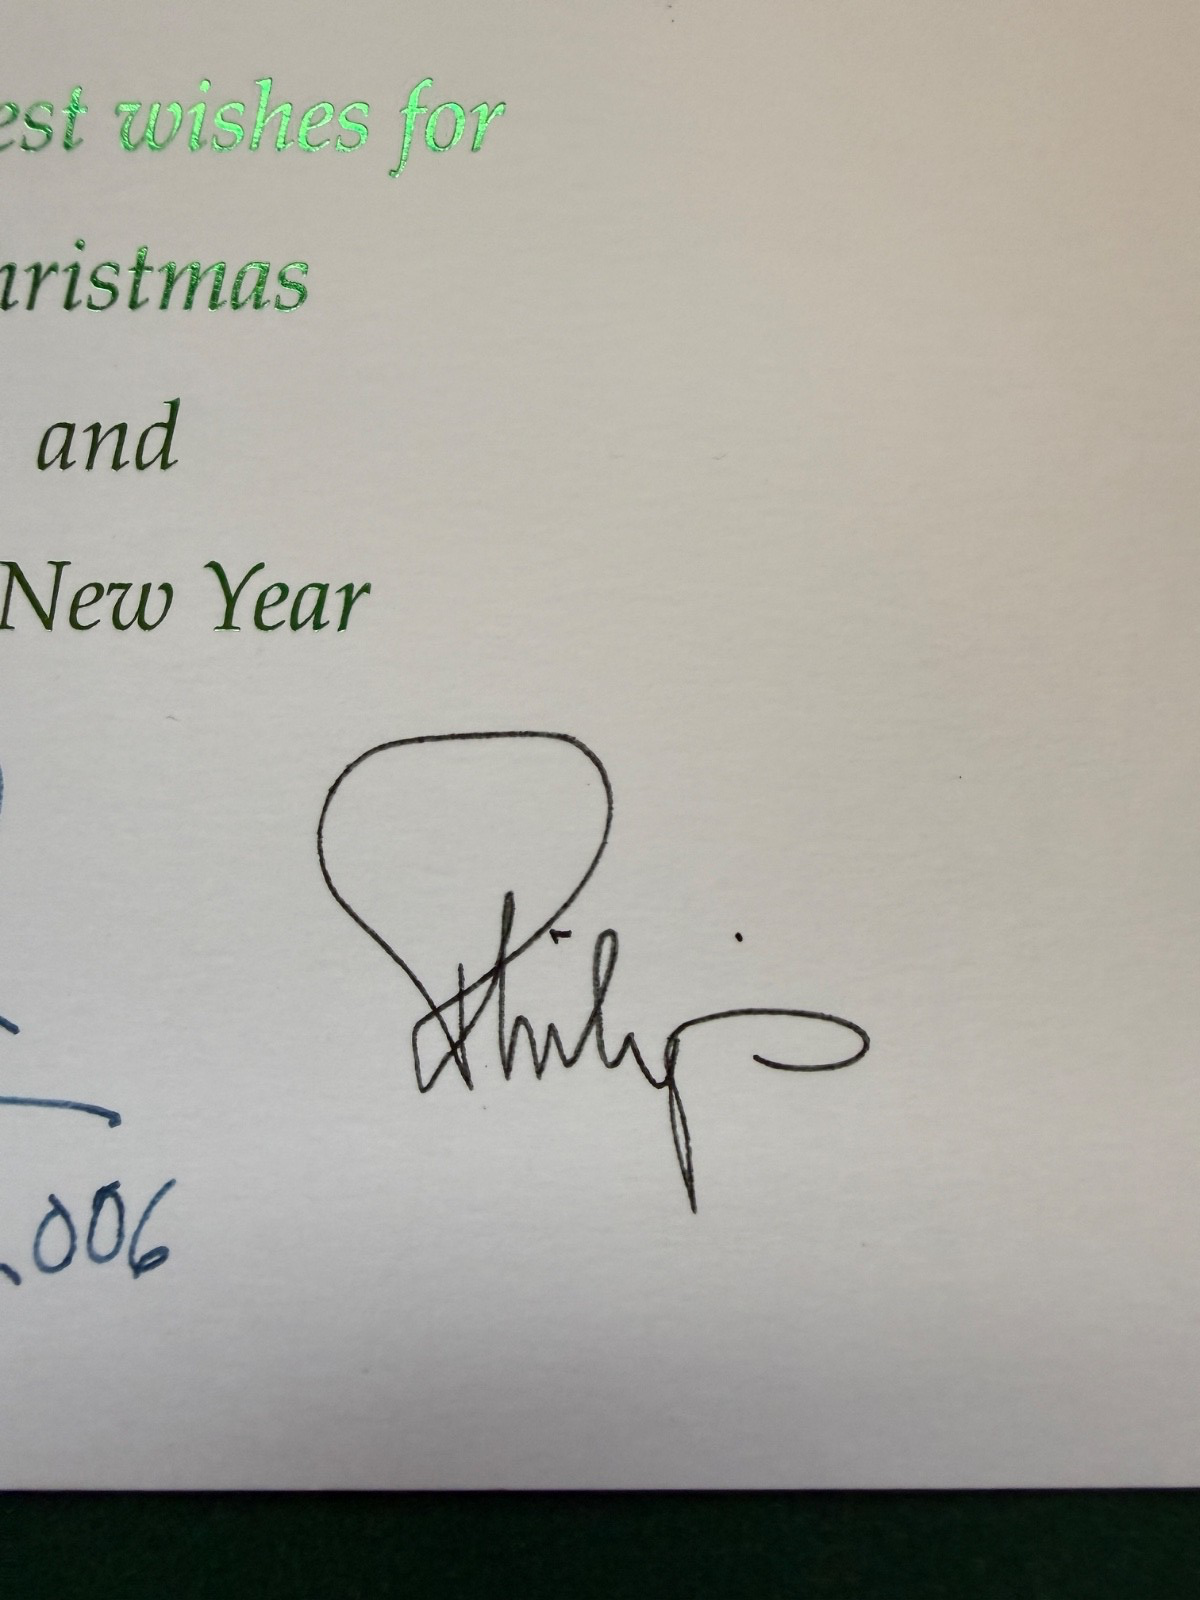 est wishes for
hristmas
and
New Year
Philip
.006